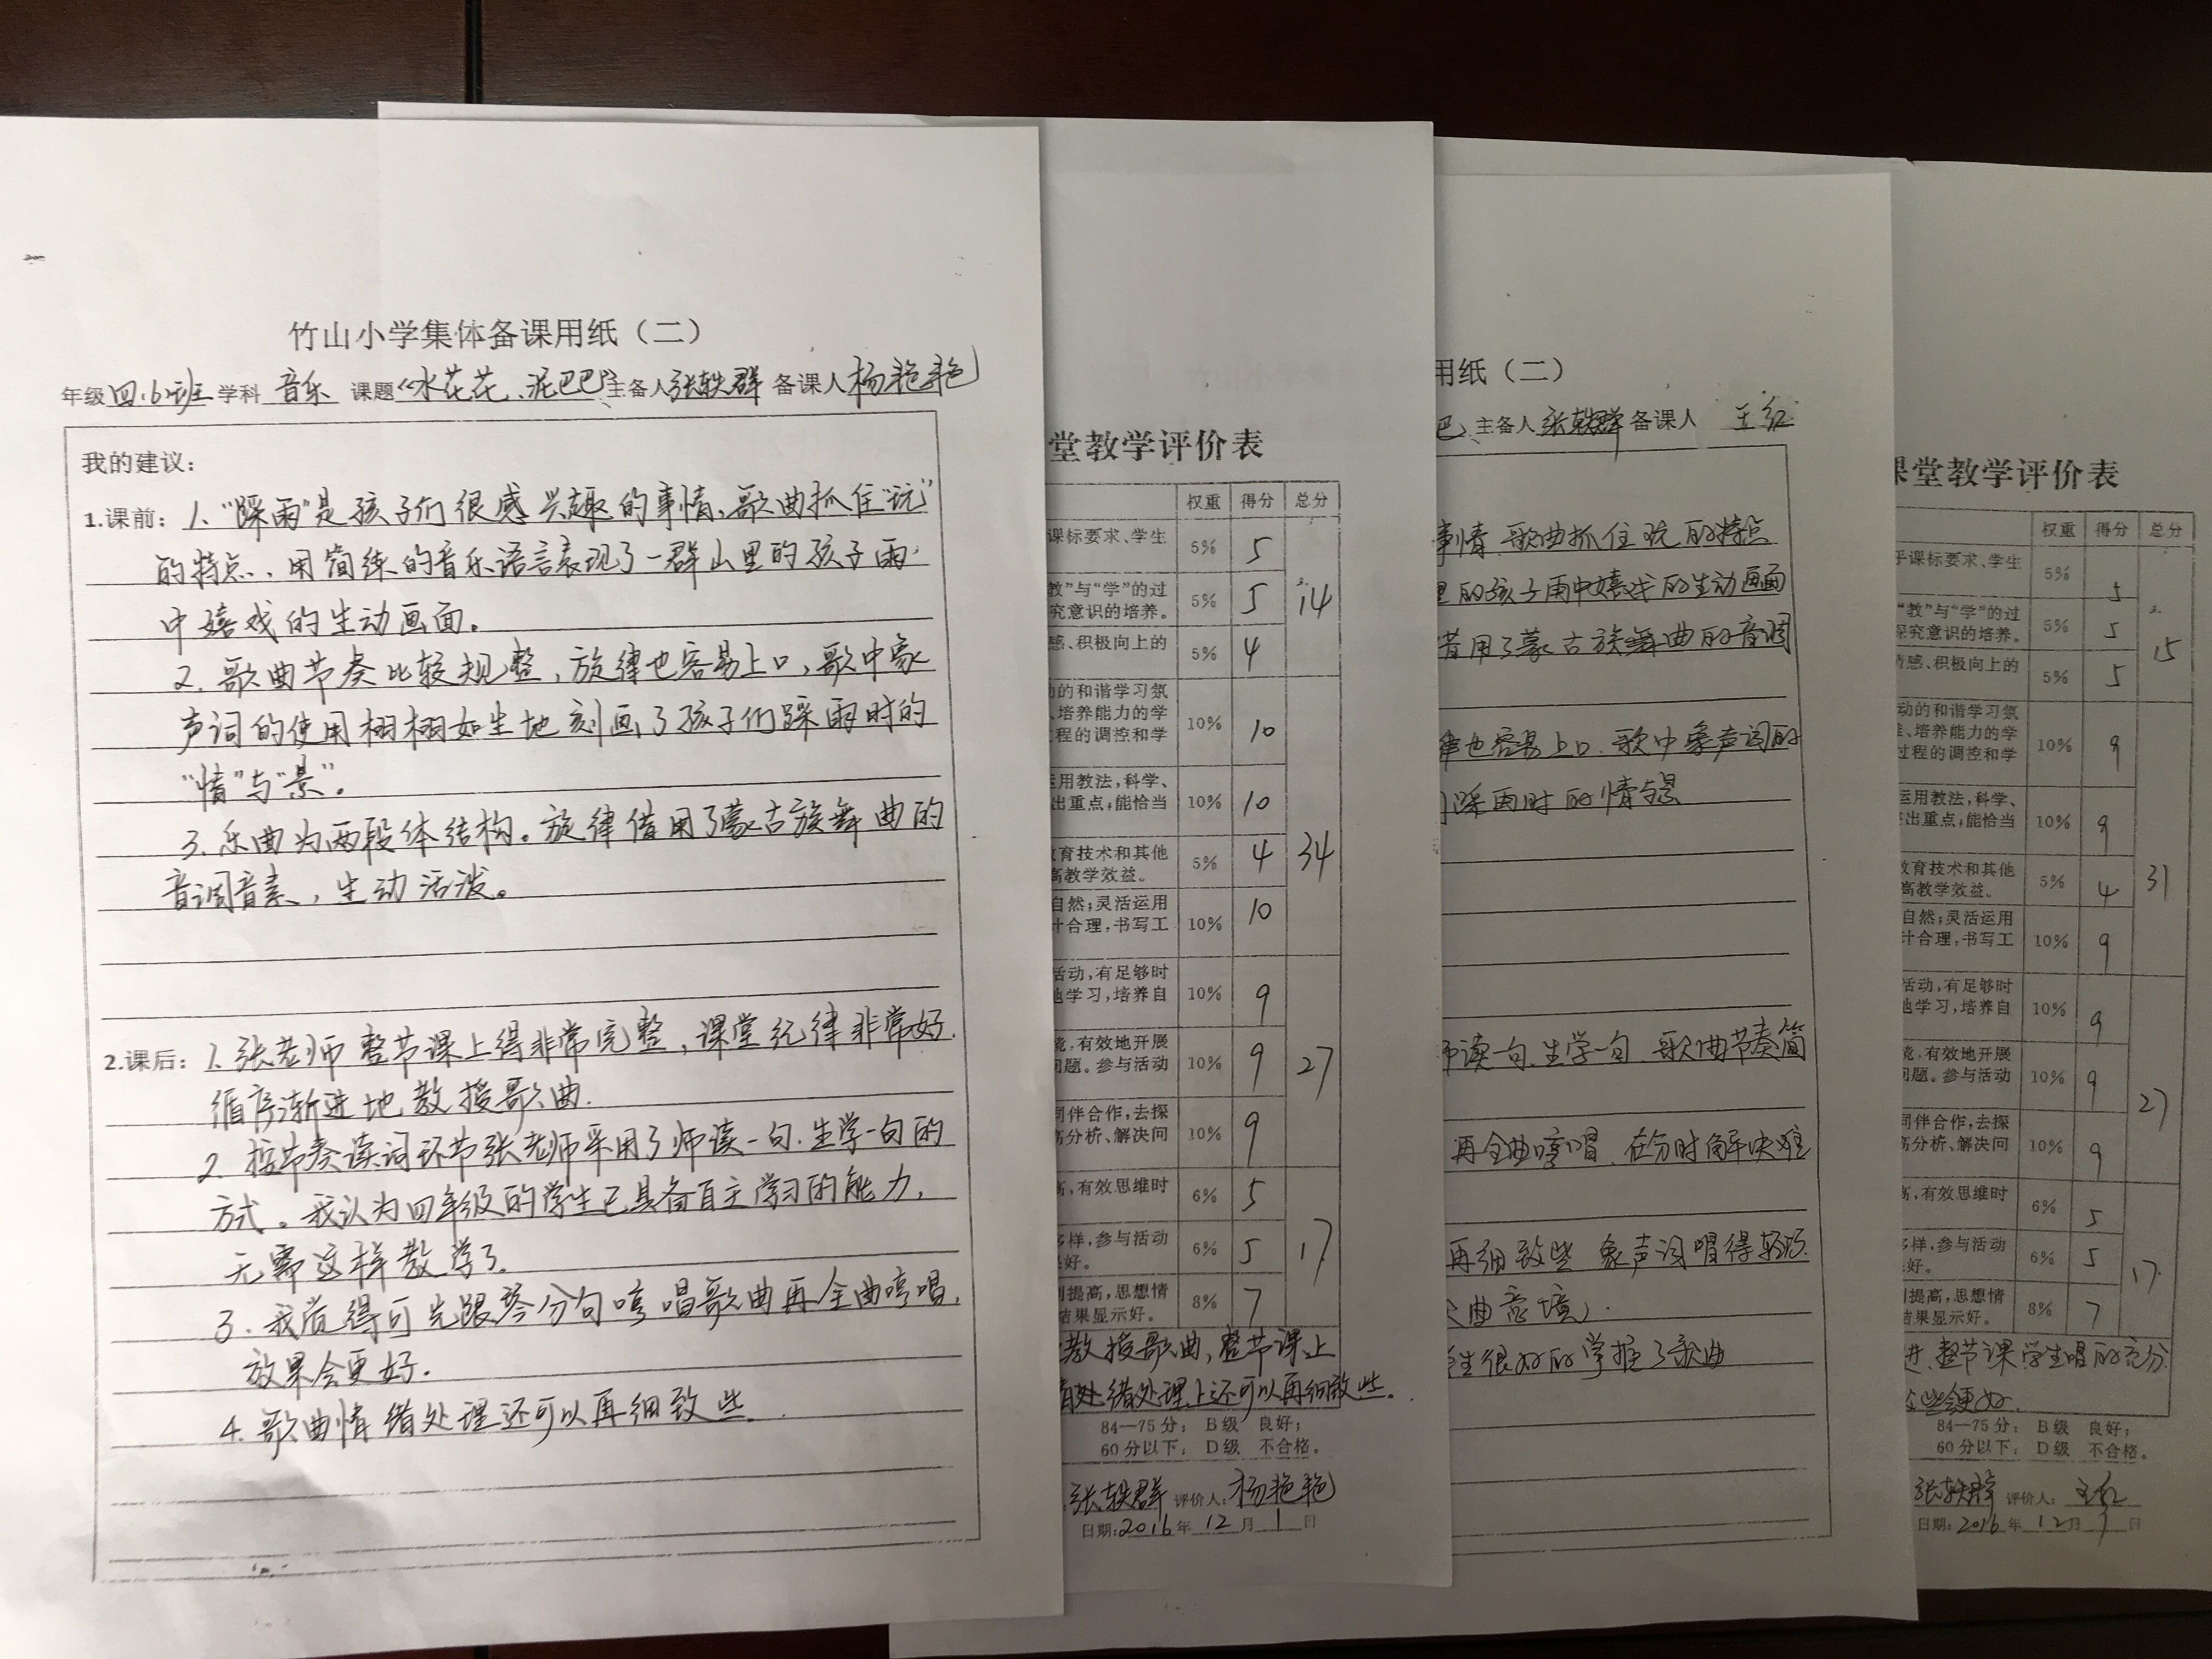 竹山小学集体备课用纸（二）
年级四.6班 学科 音乐 课题《水花花、泥巴巴》主备人张轶群 备课人杨艳艳
我的建议：
1.课前：1、“踩雨”是孩子们很感兴趣的事情、歌曲抓住“玩”
的特点、用简练的音乐语言表现了一群山里的孩子雨
中嬉戏的生动画面。
2. 歌曲节奏比较规整，旋律也容易上口，歌中象
声词的使用栩栩如生地刻画了孩子们踩雨时的
“情”与“景”。
3. 乐曲为两段体结构。旋律借用了蒙古族舞曲的
音调音素，生动活泼。
2.课后：1. 张老师整节课上得非常完整，课堂纪律非常好.
循序渐进地教授歌曲.
2. 按节奏读词环节张老师采用了师读一句.生学一句的
方式。我认为四年级的学生已具备自主学习的能力，
无需这样教学了.
3. 我觉得可先跟琴分句哼唱歌曲再全曲哼唱，
效果会更好.
4. 歌曲情绪处理还可以再细致些.
堂教学评价表
权重 得分 总分
课标要求、学生
5% 5
教”与“学”的过
究意识的培养。 5% 5 14
感、积极向上的
5% 4
动的和谐学习筑
、培养能力的学
程的调控和学 10% 10
运用教法，科学、
出重点，能恰当 10% 10
教育技术和其他
高教学效益。 5% 4 34
自然；灵活运用
计合理，书写工 10% 10
活动，有足够时
地学习，培养自 10% 9
境，有效地开展
问题。参与活动 10% 9 27
同伴合作，去探
高分析、解决问 10% 9
高，有效思维时
6% 5
多样，参与活动
好。 6% 5 17
到提高，思想情
结果显示好。 8% 7
教授歌曲，整节课上
绪处理上还可以再细致些.
84—75分； B级 良好；
60分以下； D级 不合格。
张轶群 评价人：杨艳艳
日期：2016年 12月 1日
用纸（二）
巴》主备人 张轶群 备课人 王红
事情.歌曲抓住玩的特点
里的孩子雨中嬉戏的生动画面
借用了蒙古族舞曲的音调
律也容易上口.歌中象声词的
们踩雨时的情与景
师读一句.生学一句.歌曲节奏简
再全曲哼唱.在分时解决难
再细致些 象声词唱得轻巧.
曲意境）.
学生很好的掌握了歌曲
课堂教学评价表
权重 得分 总分
乎课标要求、学生
5% 5
“教”与“学”的过
探究意识的培养。 5% 5 15
情感、积极向上的
5% 5
动的和谐学习筑
、培养能力的学
过程的调控和学 10% 9
运用教法，科学、
出重点，能恰当 10% 9
教育技术和其他
高教学效益。 5% 4 31
自然；灵活运用
计合理，书写工 10% 9
活动，有足够时
地学习，培养自 10% 9
境，有效地开展
问题。参与活动 10% 9 27
同伴合作，去探
高分析、解决问 10% 9
高，有效思维时
6% 5
多样，参与活动
好。 6% 5 17
到提高，思想情
结果显示好。 8% 7
进、整节课学生唱的充分.
些会更好.
84—75分； B级 良好；
60分以下； D级 不合格。
张轶群 评价人： 王红
日期：2016年 12月 日